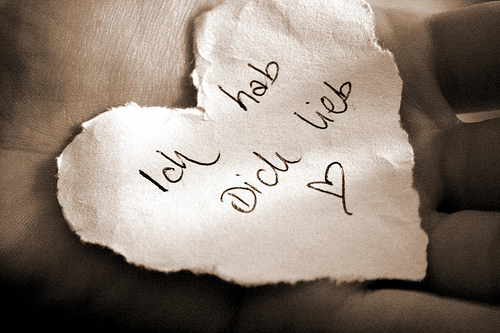 Ich hab
Dich lieb
♡